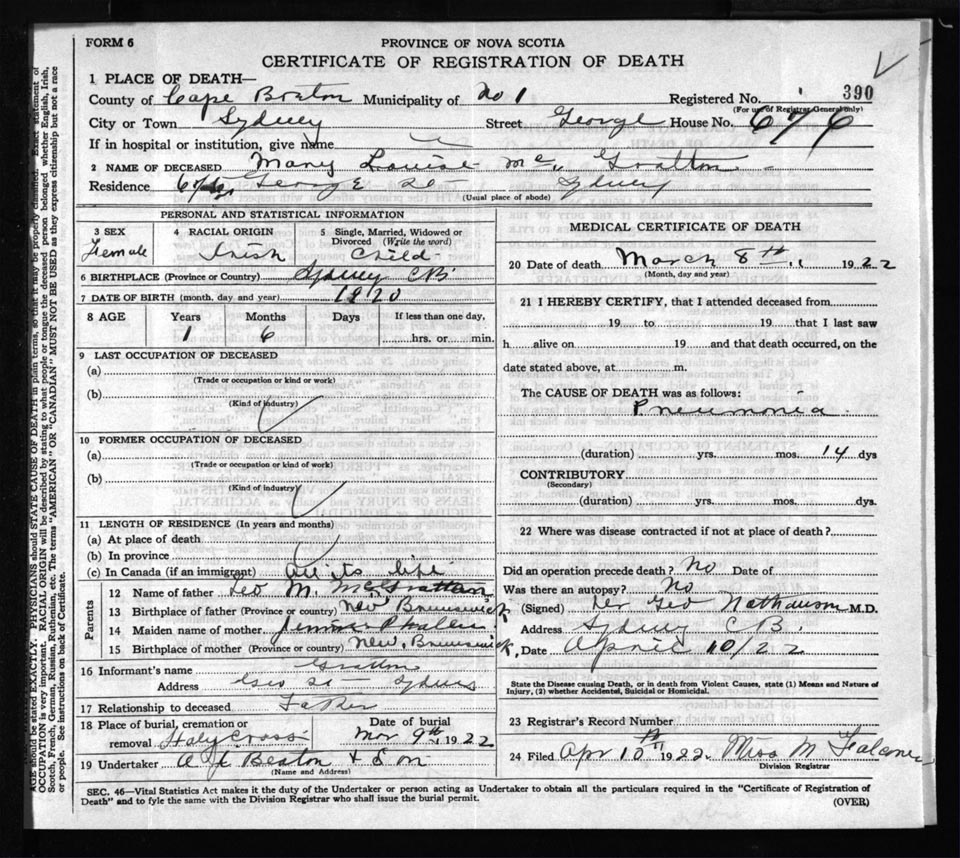 FORM 6
PROVINCE OF NOVA SCOTIA
CERTIFICATE OF REGISTRATION OF DEATH
1 PLACE OF DEATH—
County of Cape Breton Municipality of No 1 Registered No. 390
(For use of Registrar General only)
City or Town Sydney Street George House No. 676
If in hospital or institution, give name
2 NAME OF DECEASED Mary Louise Mc Gratton
Residence George St Sydney
(Usual place of abode)
PERSONAL AND STATISTICAL INFORMATION
3 SEX Female
4 RACIAL ORIGIN Irish
5 Single, Married, Widowed or Divorced (Write the word) Child
6 BIRTHPLACE (Province or Country) Sydney CB
7 DATE OF BIRTH (month, day and year) 1920
8 AGE Years Months Days If less than one day,
1 6 hrs. or min.
9 LAST OCCUPATION OF DECEASED
(a)
(Trade or occupation or kind or work)
(b)
(Kind of industry)
10 FORMER OCCUPATION OF DECEASED
(a)
(Trade or occupation or kind or work)
(b)
(Kind of industry)
11 LENGTH OF RESIDENCE (In years and months)
(a) At place of death
(b) In province
(c) In Canada (if an immigrant) all its life
Parents
12 Name of father Leo M. McGrattan
13 Birthplace of father (Province or country) New Brunswick
14 Maiden name of mother Jennie Phalen
15 Birthplace of mother (Province or country) New Brunswick
16 Informant's name Gratton
Address Geo St Sydney
17 Relationship to deceased Father
18 Place of burial, cremation or removal Holy Cross Date of burial Mar 9th 1922
19 Undertaker A J Beaton & Son
(Name and Address)
MEDICAL CERTIFICATE OF DEATH
20 Date of death March 8th 1922
(Month, day and year)
21 I HEREBY CERTIFY, that I attended deceased from
19 to 19 that I last saw
h alive on 19 and that death occurred, on the
date stated above, at m.
The CAUSE OF DEATH was as follows:
Pneumonia
(duration) yrs. mos. 14 dys
CONTRIBUTORY
(Secondary)
(duration) yrs. mos. dys.
22 Where was disease contracted if not at place of death?
Did an operation precede death? No Date of
Was there an autopsy? No
(Signed) Geo Nathanson M.D.
Address Sydney CB.
Date April 10/22
State the Disease causing Death, or in death from Violent Causes, state (1) Means and Nature of
Injury, (2) whether Accidental, Suicidal or Homicidal.
23 Registrar's Record Number
24 Filed Apr 10th 1922. Miss M Falconer
Division Registrar
SEC. 46—Vital Statistics Act makes it the duty of the Undertaker or person acting as Undertaker to obtain all the particulars required in the "Certificate of Registration of
Death" and to fyle the same with the Division Registrar who shall issue the burial permit.
(OVER)
AGE should be stated EXACTLY. PHYSICIANS should STATE CAUSE OF DEATH in plain terms, so that it may be properly classified. Exact statement of
OCCUPATION is very important. RACIAL ORIGIN will be described by stating to what people or tongue the deceased person belonged whether English, Irish,
Scotch, French, German, Russian, Ruthenian, etc. The terms "AMERICAN" OR "CANADIAN" MUST NOT BE USED as they express citizenship but not a race
or people. See instructions on back of Certificate.